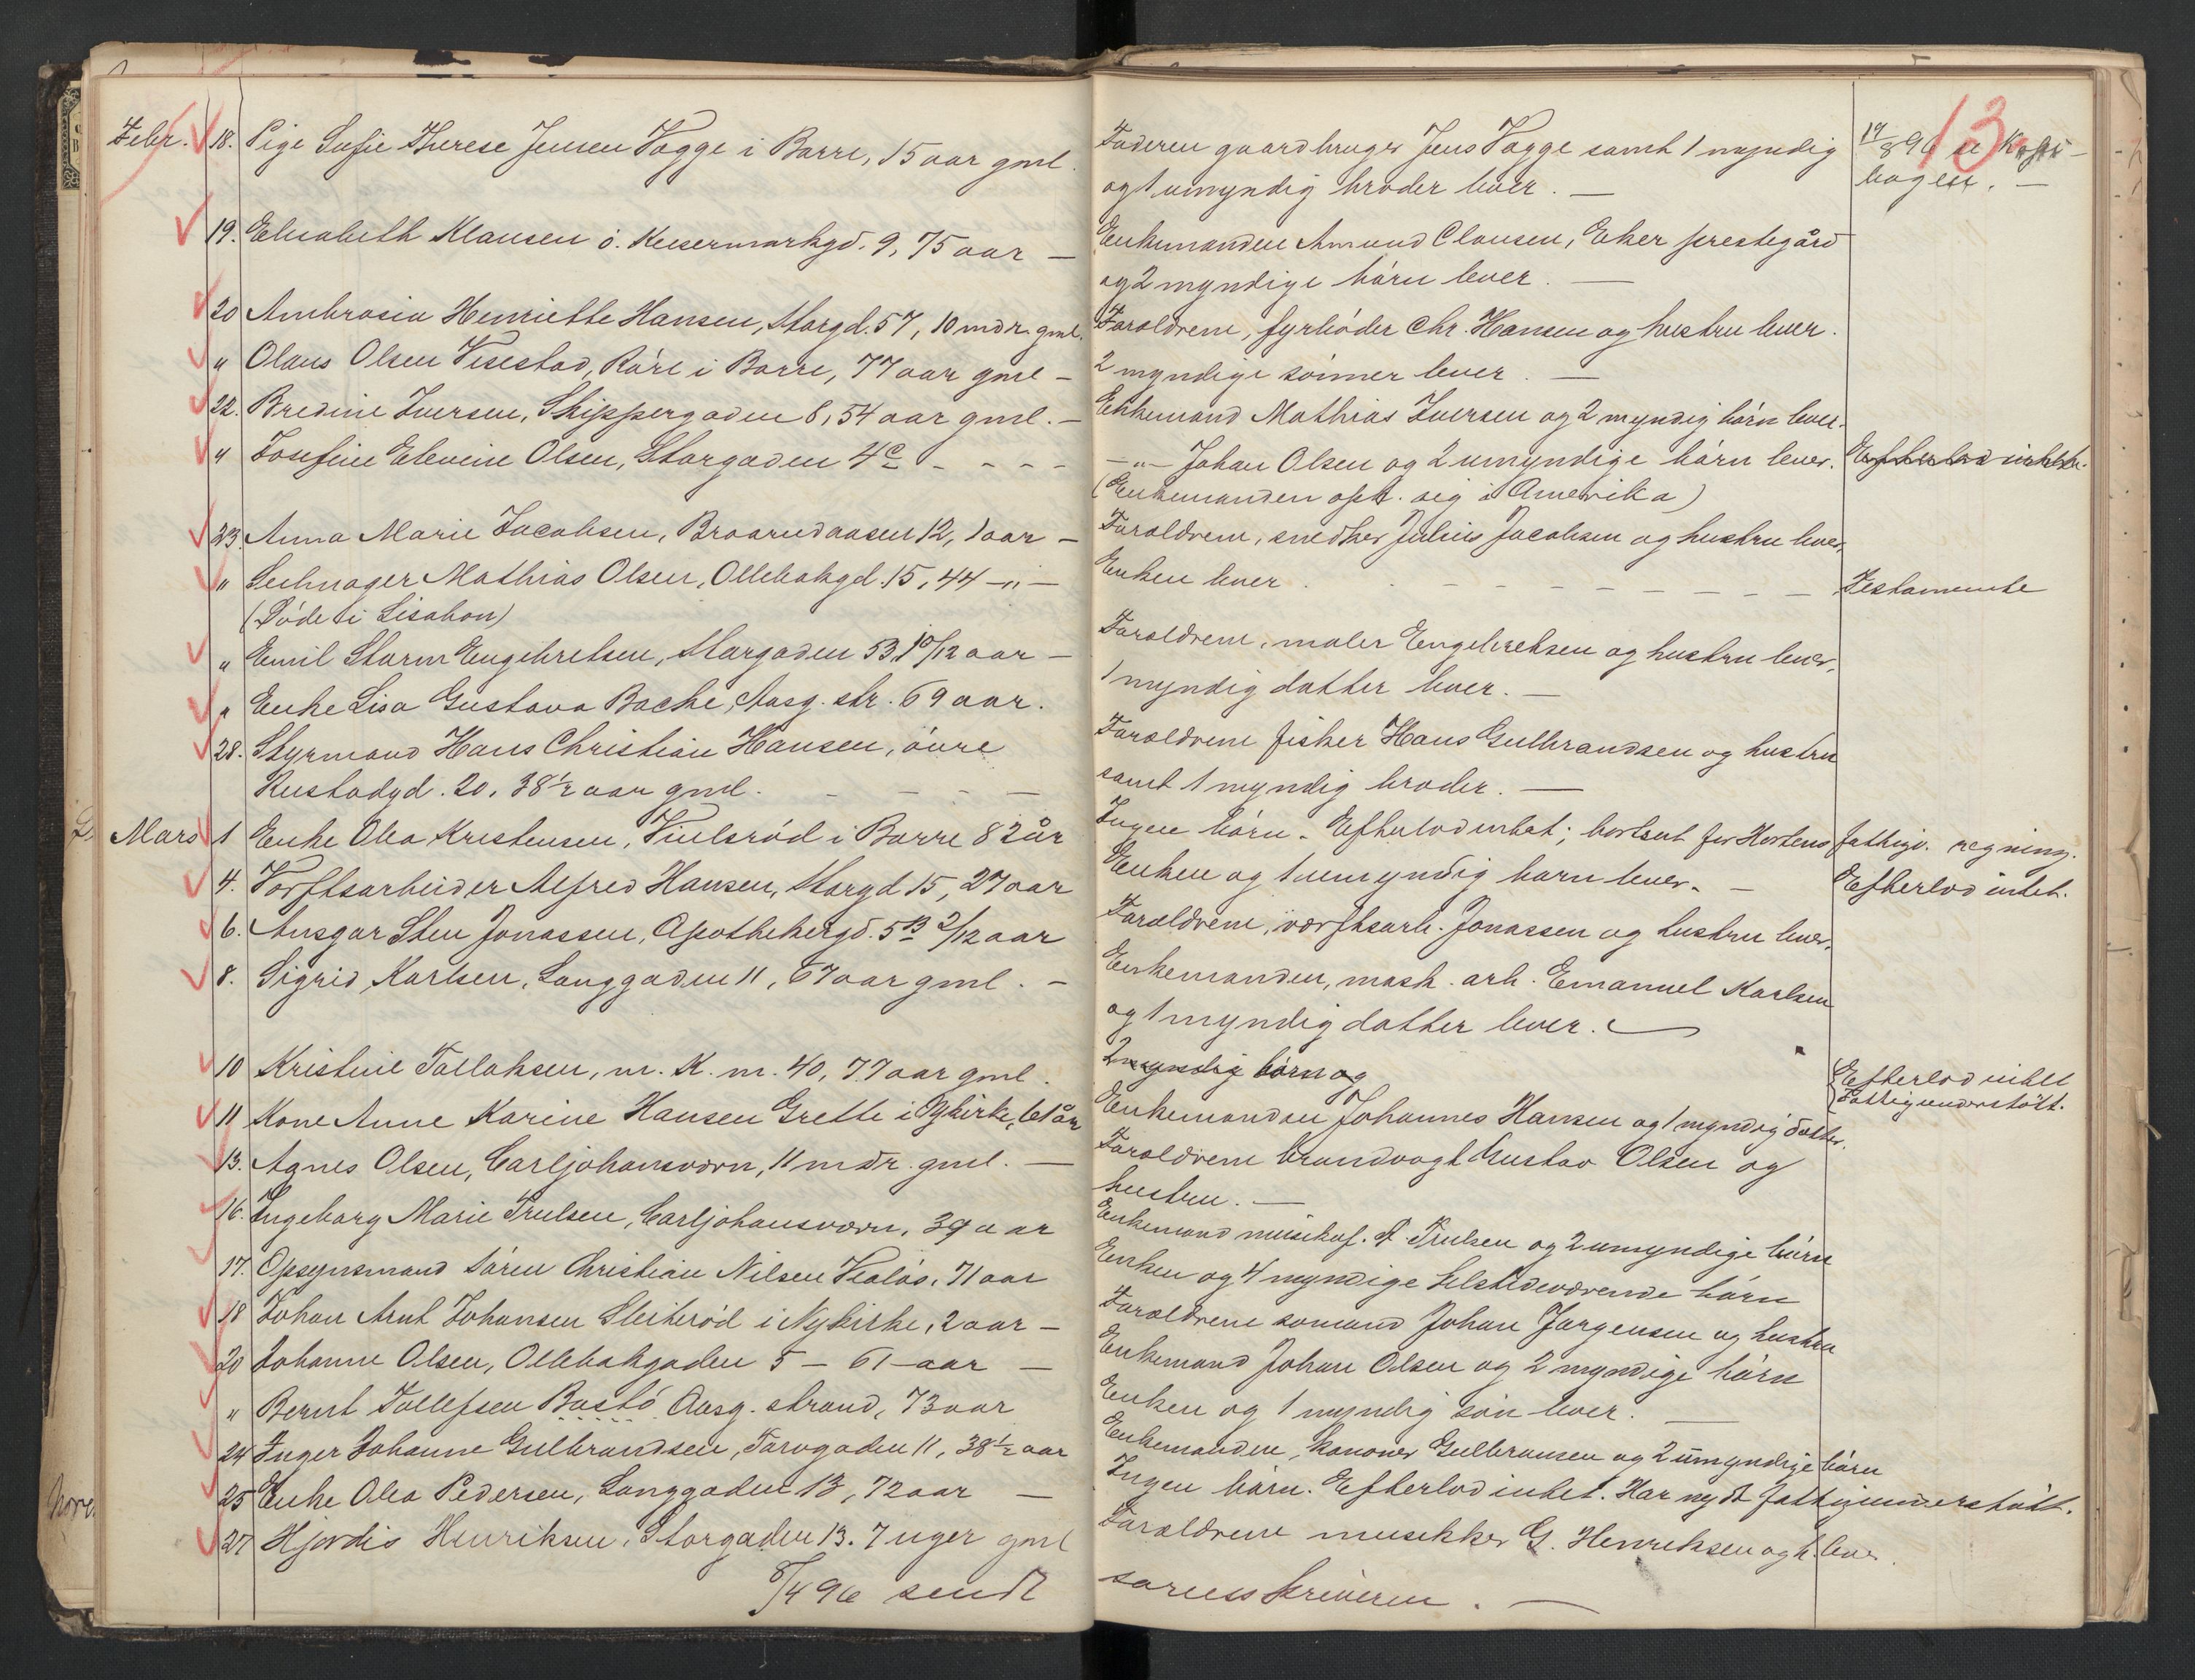 13
Febr. 18. Pige Sofie Therese Jensen Vagge i Borre, 15 aar gml.
19. Elisabeth Klausen ö. Keisermarkgd. 9, 75 aar —
20 Ambrosia Henriette Hansen, Storgd. 57, 10 mdr. gml.
" Olaus Olsen Visestad, Råre i Borre, 77 aar gml —
22. Bredine Iversen, Skippergaden 8, 54 aar gml. —
" Josefine Elevine Olsen, Storgaden 4c - - - -
23. Anna Marie Jacobsen, Braarudaasen 12, 1 aar —
" Seilmager Mathias Olsen, Ollebakgd. 15, 44 —"—
(Döde i Lisabon)
" Emil Storm Engebretsen, Storgaden 53, 10/12 aar —
" Enke Lisa Gustava Bache, Aasg. str. 69 aar.
28. Styrmand Hans Christian Hansen, övre
Rustadgd. 20, 38½ aar gml. - - - —
Mars 1 Enke Olea Kristensen, Viulsröd i Borre 82 år
4. Værftsarbeider Alfred Hansen, Storgd 15, 27 aar
6. Ansgar Sten Jonassen, Apothekergd. 5B 2/12 aar
8. Sigrid Karlsen, Langgaden 11, 67 aar gml. —
10 Kristine Tollaksen, m. K. m. 40, 77 aar gml.
11 Kone Anne Karine Hansen Grette i Nykirke, 61 år
13. Agnes Olsen, Carljohansværn, 11 mdr. gml. —
16. Ingeborg Marie Trulsen, Carljohansværn, 39 aar
17. Opsynsmand Sören Christian Nilsen Vealös, 71 aar
18 Johan Arnt Johansen Sleiteröd i Nykirke, 2 aar —
20 Johanne Olsen, Ollebakgaden 5 — 61 aar —
" Bernt Tollefsen Bastö Aasg. strand, 73 aar
24 Inger Johanne Gulbrandsen, Torvgaden 11, 38½ aar
25 Enke Olea Pedersen, Langgaden 13, 72 aar —
27 Hjørdis Henriksen, Storgaden 13. 7 uger gml
8/4 96 sendt
Faderen gaardbruger Jens Vagge samt 1 myndig
og 1 umyndig broder lever. —
bogen. —
Enkemanden Amund Clausen, Eker prestegård
og 2 myndige börn lever. —
Forældrene, fyrböder Chr. Hansen og hustru lever.
2 myndige sönner lever. —
Enkemand Mathias Iversen og 2 myndig börn lever.
—"— Johan Olsen og 2 umyndige börn lever. Efterlod intet.
(Enkemanden oph. sig i Amerika)
Forældrene, snedker Julius Jacobsen og hustru lever.
Enken lever. - - - - - - - Testamente
Forældrene, maler Engebretsen og hustru lever.
1 myndig datter lever. —
Forældrene fisker Hans Gulbrandsen og hustru
samt 1 myndig broder. —
Ingen börn. Efterlod intet; bortsat for Hortens fattigv. regning.
Enken og 1 umyndig barn lever. — Efterlod intet.
Forældrene, værftsarb. Jonassen og hustru lever.
Enkemanden, mask. arb. Emanuel Karlsen
og 1 myndig datter lever. —
2 myndig börn og
Efterlod intet
Fattigunderstött.
Enkemanden Johannes Hansen og 1 myndig datter.
Forældrene brandvagt Gustav Olsen og
hustru. —
Enkemand musikuf. A. Trulsen og 2 umyndige börn
Enken og 4 myndige selstedeværende börn
Forældrene sömand Johan Jørgensen og hustru
Enkemand Johan Olsen og 2 myndige börn
Enken og 1 myndig sön lever. —
Enkemanden, kanoner Gulbransen og 2 umyndige börn
Ingen börn. Efterlod intet. Har nydt fattigunderstött.
Forældrene musikker G. Henriksen og h. lever.
sorenskriveren. —